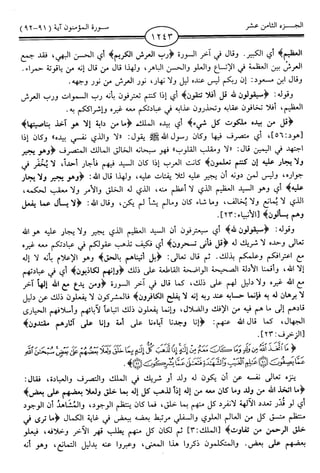 الجـــزء الثامن عشر
١٢٤٣
سورة المؤمنون آية (٩١-٩٢)
العظيم﴾ أي الكبير. وقال في آخر السورة ﴿رب العرش الكريم﴾ أي الحسن البهي، فقد جمع
العرش بين العظمة في الإتساع والعلو والحسن الباهر، ولهذا قال من قال إنه من ياقوتة حمراء.
وقال ابن مسعود: إن ربكم ليس عنده ليل ولا نهار، نور العرش من نور وجهه.
وقوله: ﴿سيقولون لله قل أفلا تتقون﴾ أي إذا كنتم تعترفون بأنه رب السموات ورب العرش
العظيم، أفلا تخافون عقابه وتحذرون عذابه في عبادتكم معه غيره وإشراككم به.
﴿قل من بيده ملكوت كل شيء﴾ أي بيده الملك ﴿ما من دابة إلا هو آخذ بناصيتها﴾
[هود:٥٦]، أي متصرف فيها وكان رسول الله ﷺ يقول: «لا والذي نفسي بيده» وكان إذا
اجتهد في اليمين قال: «لا ومقلب القلوب» فهو سبحانه الخالق المالك المتصرف ﴿وهو يجير
ولا يجار عليه إن كنتم تعلمون﴾ كانت العرب إذا كان السيد فيهم فأجار أحداً، لا يُخفَر في
جواره، وليس لمن دونه أن يجير عليه لئلا يفتات عليه، ولهذا قال الله: ﴿وهو يجير ولا يجار
عليه﴾ أي وهو السيد العظيم الذي لا أعظم منه، الذي له الخلق والأمر ولا معقب لحكمه،
الذي لا يُمانع ولا يُخالف، وما شاء كان ومالم يشأ لم يكن، وقال الله: ﴿لا يسأل عما يفعل
وهم يسألون﴾ [الأنبياء:٢٣].
وقوله: ﴿سيقولون لله﴾ أي سيعترفون أن السيد العظيم الذي يجير ولا يجار عليه هو الله
تعالى وحده لا شريك له ﴿قل فأنى تسحرون﴾ أي فكيف تذهب عقولكم في عبادتكم معه غيره
مع اعترافكم وعلمكم بذلك. ثم قال تعالى: ﴿بل أتيناهم بالحق﴾ وهو الإعلام بأنه لا إله
إلا الله، وأقمنا الأدلة الصحيحة الواضحة القاطعة على ذلك ﴿وإنهم لكاذبون﴾ أي في عبادتهم
مع الله غيره ولا دليل لهم على ذلك، كما قال في آخر السورة ﴿ومن يدع مع الله إلهاً آخر
لا برهان له به فإنما حسابه عند ربه إنه لا يفلح الكافرون﴾ فالمشركون لا يفعلون ذلك عن دليل
قادهم إلى ما هم فيه من الإفك والضلال، وإنما يفعلون ذلك اتباعاً لآبائهم وأسلافهم الحيارى
الجهال، كما قال الله عنهم: ﴿إنا وجدنا آباءنا على أمة وإنا على آثارهم مقتدون﴾
[الزخرف:٢٣].
﴿مَا اتَّخَذَ اللَّهُ مِن وَلَدٍ وَمَا كَانَ مَعَهُ مِنْ إِلَهٍ إِذًا لَّذَهَبَ كُلُّ إِلَهٍ بِمَا خَلَقَ وَلَعَلَا بَعْضُهُمْ عَلَى بَعْضٍ سُبْحَانَ اللَّهِ
عَمَّا يَصِفُونَ ۝ عَالِمِ الْغَيْبِ وَالشَّهَادَةِ فَتَعَالَى عَمَّا يُشْرِكُونَ ۝﴾.
ينزه تعالى نفسه عن أن يكون له ولد أو شريك في الملك والتصرف والعبادة، فقال:
﴿ما اتخذ الله من ولد وما كان معه من إله إذاً لذهب كل إله بما خلق ولعلا بعضهم على بعض﴾
أي لو قُدِّر تعدد الآلهة لانفرد كل منهم بما خلق، فما كان ينتظم الوجود، والمُشاهَدُ أن الوجود
منتظم متسق كل من العالم العلوي والسفلي مرتبط بعضه ببعض في غاية الكمال ﴿ما ترى في
خلق الرحمن من تفاوت﴾ [الملك:٣] ثم لكان كل منهم يطلب قهر الآخر وخلافه، فيعلو
بعضهم على بعض. والمتكلمون ذكروا هذا المعنى، وعبروا عنه بدليل التمانع، وهو أنه